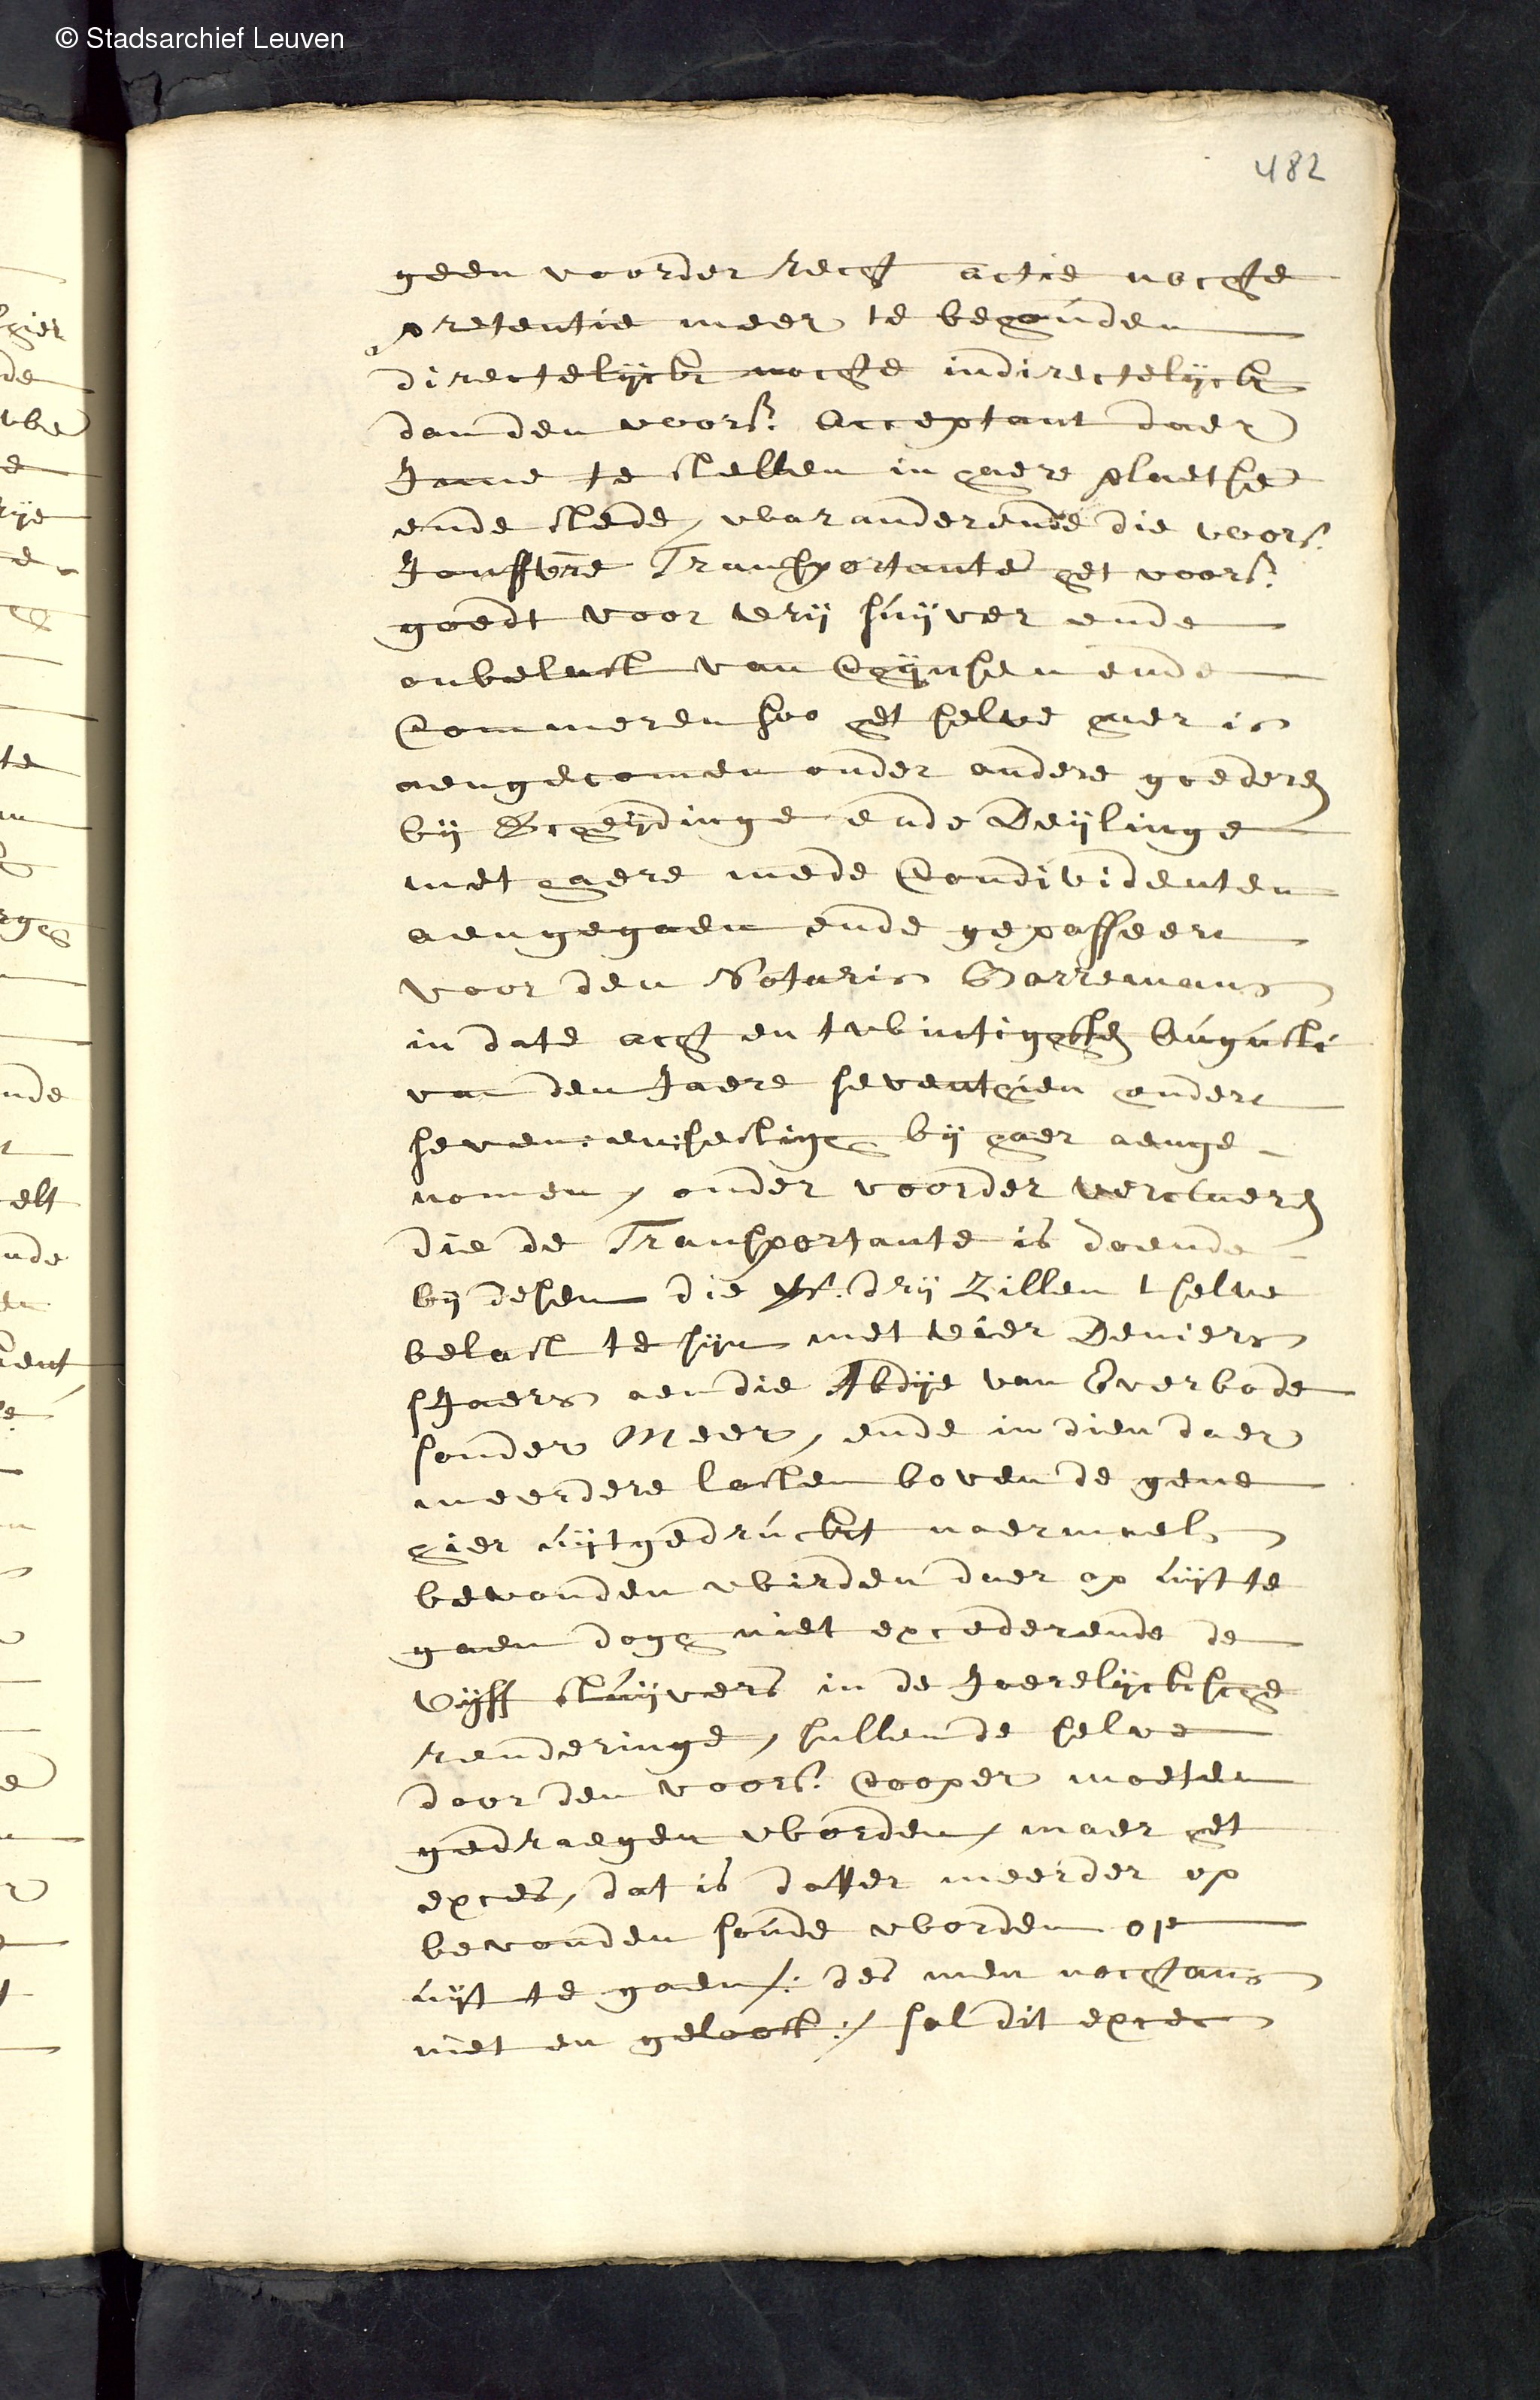 © Stadsarchief Leuven
482
geen voorder recht actie nochte
pretentie meer te behouden
directelijck nochte indirectelijck
dan den voors. Acceptant daer
Inne te stellen in haere plaetse
ende stede, waranderende die voors.
Jouffvre Transportante het voors.
goedt voor vrij suijver ende
onbelast van Chijnsen ende
Commeren soo het selve haer is
aengecomen onder andere goederen
bij Scheijdinge ende Deijlinge
met haere mede Condividenten
aengegaen ende gepasseert
voor den Notaris Borremans
in date acht en twintigsten Augusti
van den Jaere seventhien hondert
seven:en:sestigh bij haer aenge-
nomen, onder voorder verclaeren
die de Transportante is doende
bij desen die vs. drij Zillen t selve
belast te sijn met vier Deniers
sJaers aen die Abdije van Everbode
sonder Meer, ende in dien daer
meerdere lasten boven de gene
hier uijtgedruckt naermaels
bevonden wirden daer op uijt te
gaen dogh niet excederende de
vijff stuijvers in de Jaerelijcksche
renderinge, sullen de selve
door den voors. Cooper moeten
gedraegen worden, maer het
exces, dat is datter meerder op
bevonden soude worden op
uijt te gaen /: des men nochtans
niet en gelooft :/ sal dit exces